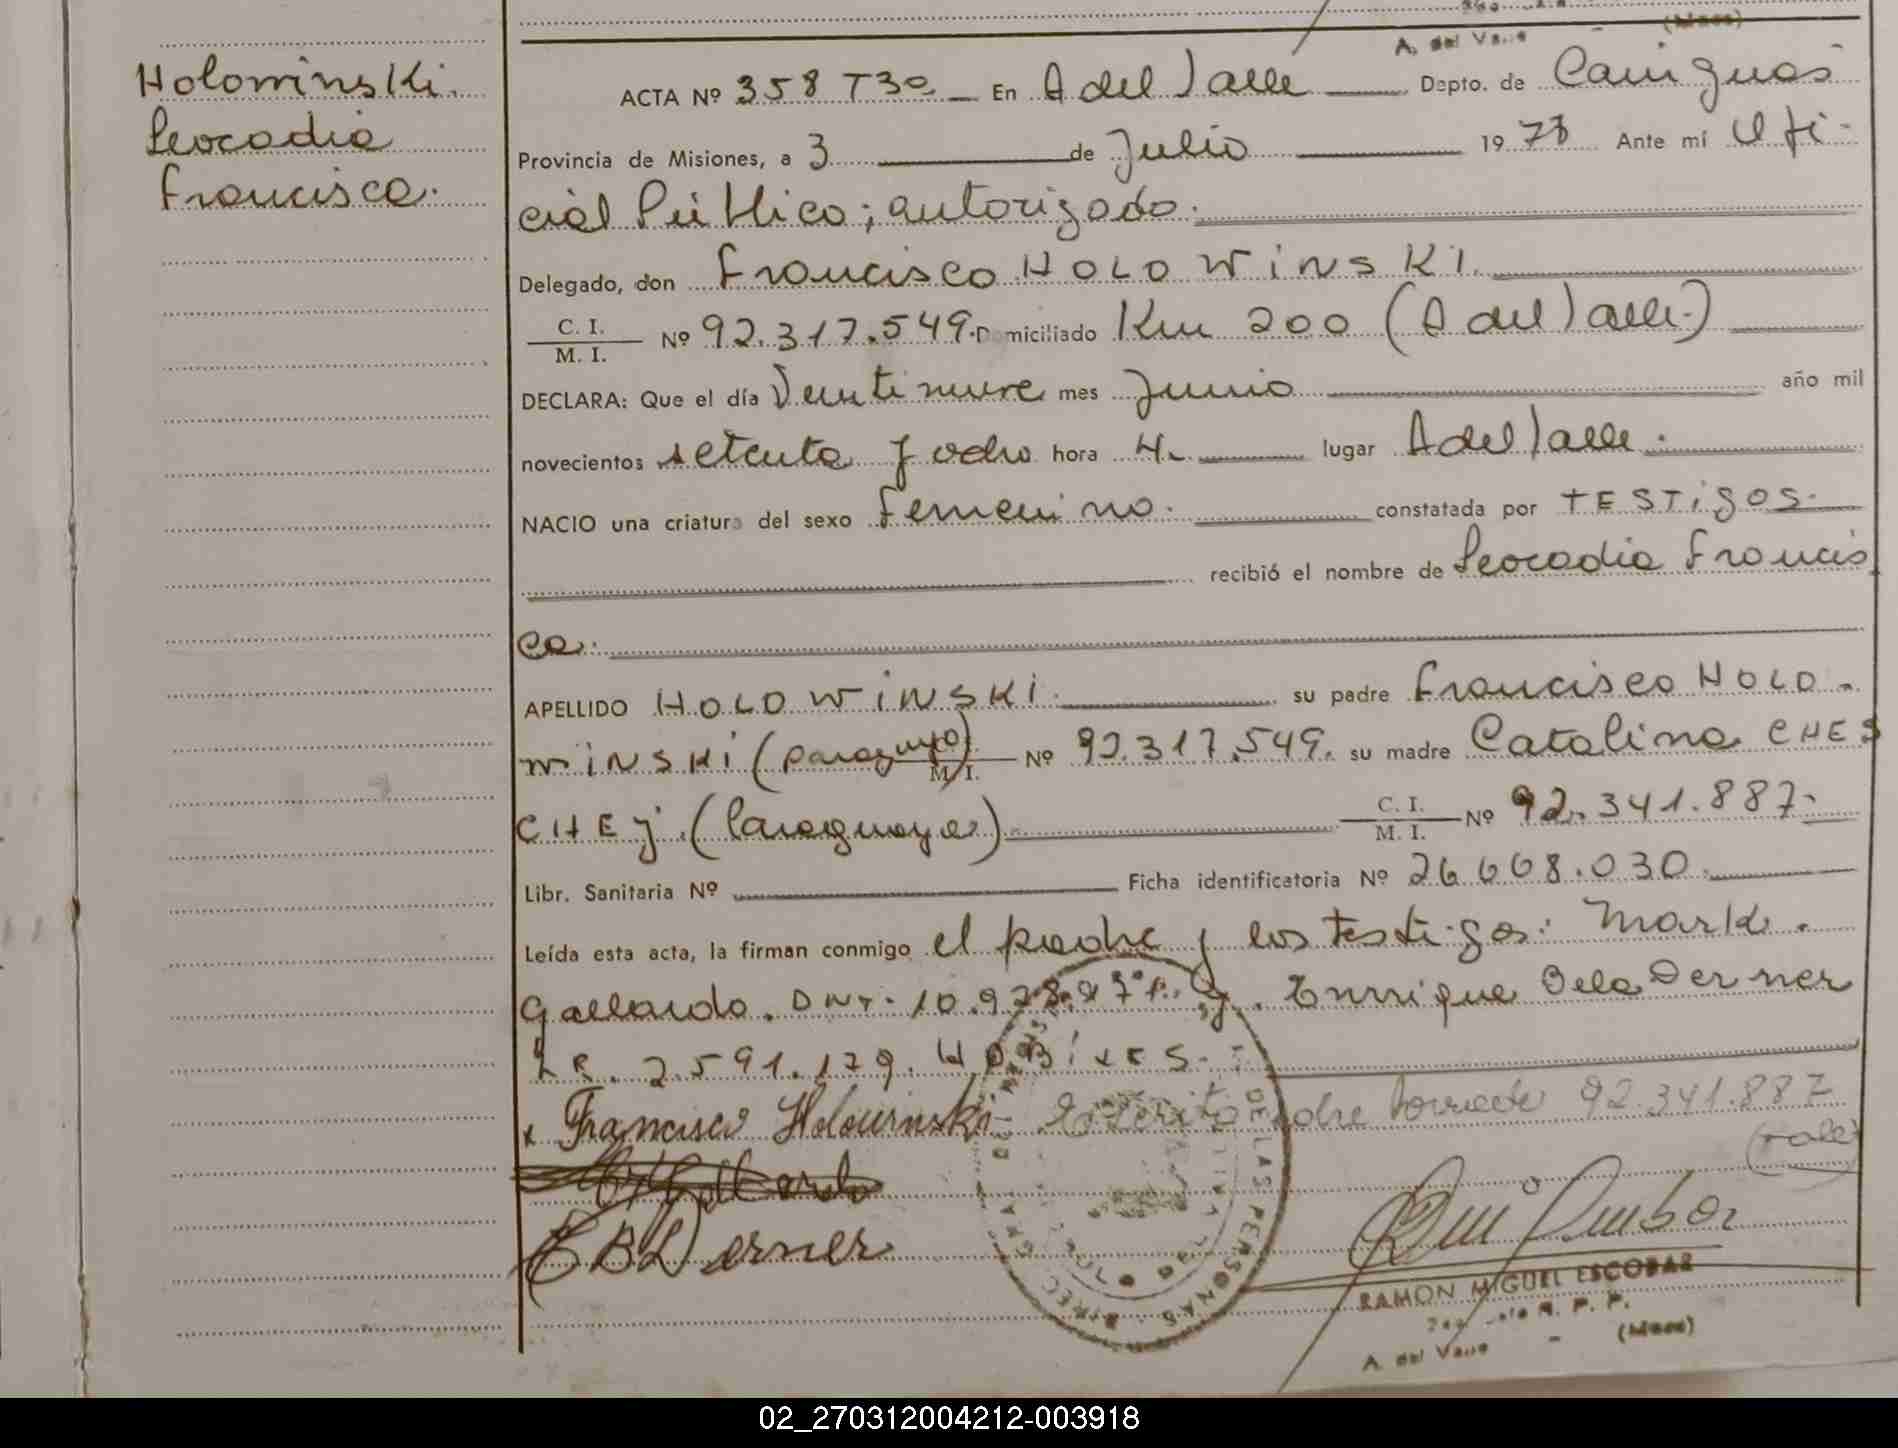 Holowinski.
Leocadia
Francisca.
A. del Valle (Mnes)
ACTA Nº 358 T30 En A del Valle Depto. de Cainguas
Provincia de Misiones, a 3 de Julio 1978 Ante mí Ofi-
cial Público; autorizado.
Delegado, don Francisco HOLOWINSKI.
C. I. / M. I. Nº 92.317.549. Domiciliado Km 200 (A del Valle.)
DECLARA: Que el día Veintinueve mes Junio año mil
novecientos setenta y ocho hora 4. lugar A del Valle.
NACIO una criatura del sexo femenino. constatada por TESTigos.
recibió el nombre de Leocadia Francis
ca.
APELLIDO HOLOWINSKI. su padre Francisco HOLO-
WINSKI (paraguayo) M. I. Nº 92.317.549. su madre Catalina CHES
CHEj. (Paraguaya) C. I. / M. I. Nº 92.341.887.
Libr. Sanitaria Nº Ficha identificatoria Nº 26.668.030.
Leída esta acta, la firman conmigo el padre y los testigos: Mark.
Gallardo. DNI. 10.928. y. Enrique Bela Derner
2.591.179. HABiles.
x Francisco Holowinski 92.341.887
(vale)
EBDerner
DIREC GRAL DE LAS PERSONAS
RAMON MIGUEL ESCOBAR
R. P. P.
A. del Valle - (Mnes)
02_270312004212-003918